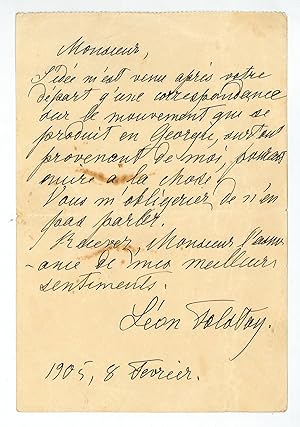 Monsieur,
L'idée m'est venu après votre
départ q'une correspondance
sur le mouvement qui se
produit en Georgie, surtout
provenant de moi, pourrait
nuire a la chose.
Vous m'obligerier de n'en
pas parler.
Recevez, Monsieur l'assu-
-ance de mes meilleurs
sentiments.
Léon Tolstoy.
1905, 8 Fevrier.